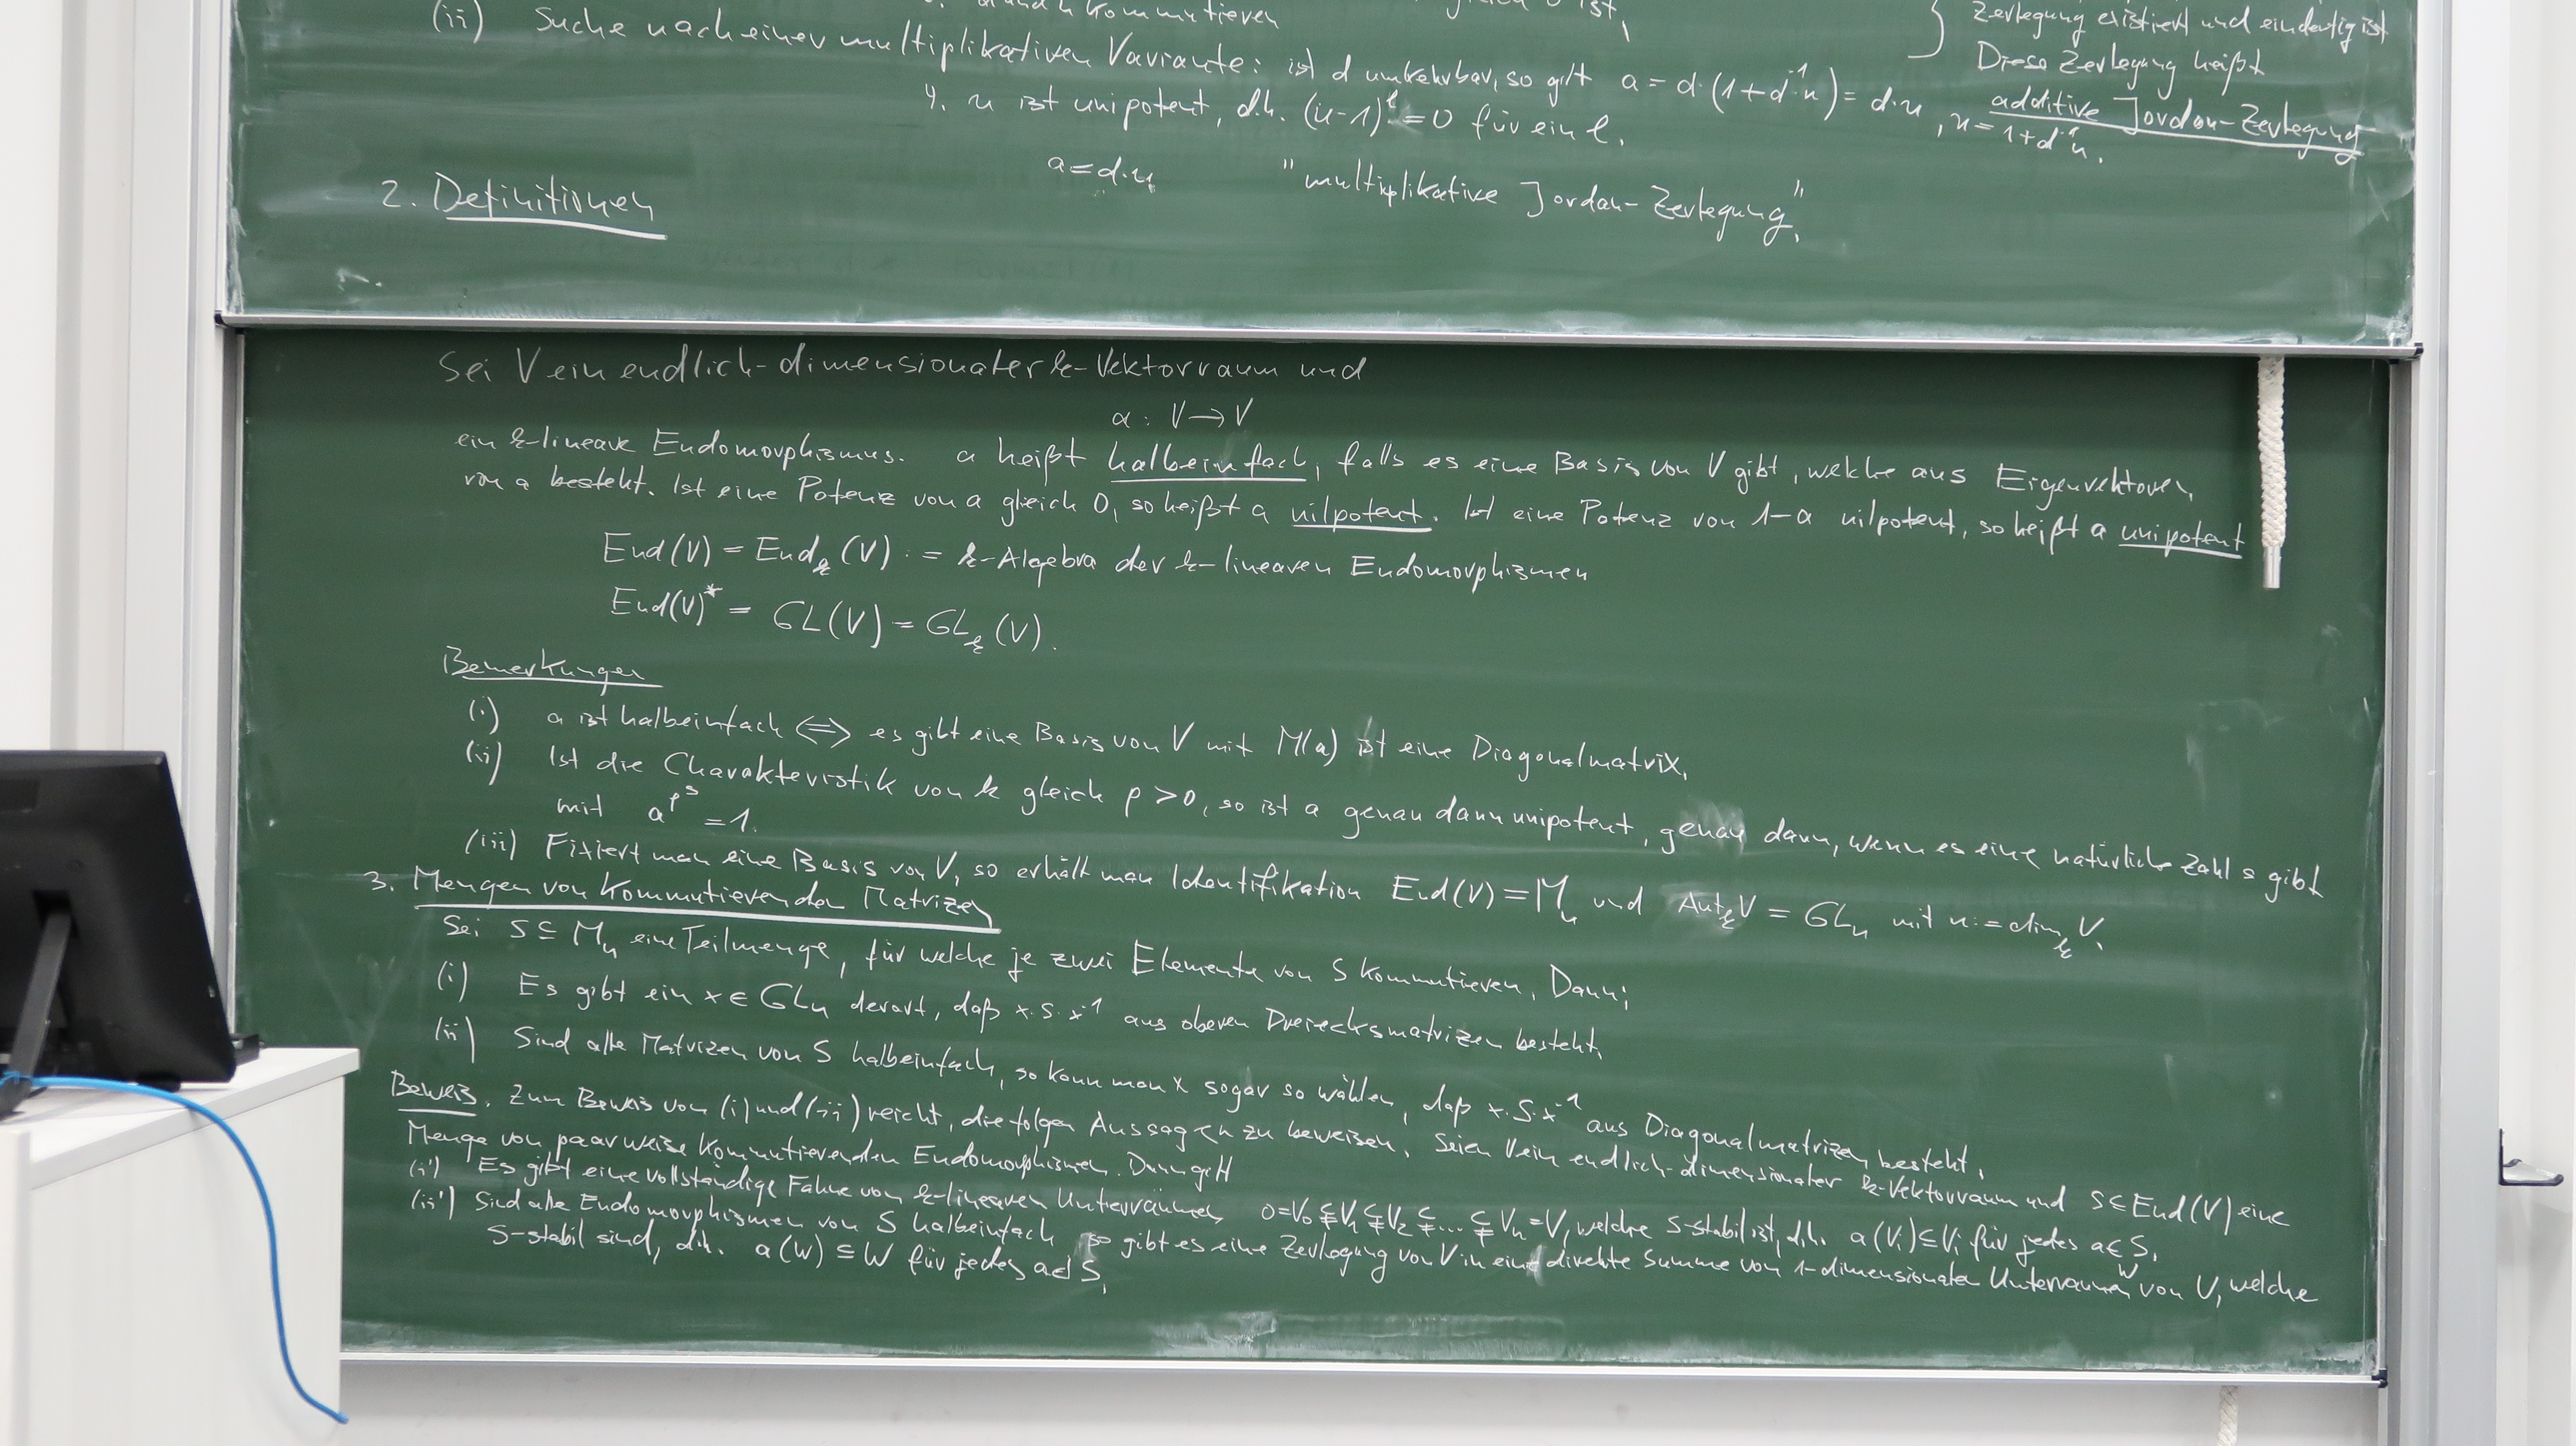 kommutieren
ist,
Zerlegung existiert und eindeutig ist
Diese Zerlegung heißt
additive Jordan-Zerlegung
(ii) Suche nach einer multiplikativen Variante: ist d umkehrbar, so gilt a = d·(1+d⁻¹n) = d·u, u = 1+d⁻¹n.
4. u ist unipotent, d.h. (u-1)^l = 0 für ein l.
a = d·u "multiplikative Jordan-Zerlegung".
2. Definitionen
Sei V ein endlich-dimensionaler k-Vektorraum und
a : V → V
ein k-lineare Endomorphismus. a heißt halbeinfach, falls es eine Basis von V gibt, welche aus Eigenvektoren
von a besteht. Ist eine Potenz von a gleich 0, so heißt a nilpotent. Ist eine Potenz von 1-a nilpotent, so heißt a unipotent
End(V) = End_k(V) := k-Algebra der k-linearen Endomorphismen
End(V)* = GL(V) = GL_k(V).
Bemerkungen
(i) a ist halbeinfach ⟺ es gibt eine Basis von V mit M(a) ist eine Diagonalmatrix.
(ii) Ist die Charakteristik von k gleich p > 0, so ist a genau dann unipotent, genau dann, wenn es eine natürliche Zahl s gibt
mit a^{p^s} = 1.
(iii) Fixiert man eine Basis von V, so erhält man Identifikation End(V) = M_n und Aut_k V = GL_n mit n := dim_k V.
3. Mengen von kommutierenden Matrizen
Sei S ⊆ M_n eine Teilmenge, für welche je zwei Elemente von S kommutieren. Dann:
(i) Es gibt ein x ∈ GL_n derart, daß x·S·x⁻¹ aus oberen Dreiecksmatrizen besteht.
(ii) Sind alle Matrizen von S halbeinfach, so kann man x sogar so wählen, daß x·S·x⁻¹ aus Diagonalmatrizen besteht.
Beweis. Zum Beweis von (i) und (ii) reicht, die folgen Aussagen zu beweisen. Seien V ein endlich-dimensionaler k-Vektorraum und S ⊆ End(V) eine
Menge von paarweise kommutierenden Endomorphismen. Dann gilt
(i') Es gibt eine vollständige Fahne von k-linearen Unterräumen 0=V₀ ⊊ V₁ ⊊ V₂ ⊊ ... ⊊ V_n = V, welche S-stabil ist, d.h. a(V_i) ⊆ V_i für jedes a ∈ S.
(ii') Sind alle Endomorphismen von S halbeinfach, so gibt es eine Zerlegung von V in eine direkte Summe von 1-dimensionalen Unterräumen W von V, welche
S-stabil sind, d.h. a(W) ⊆ W für jedes a ∈ S.